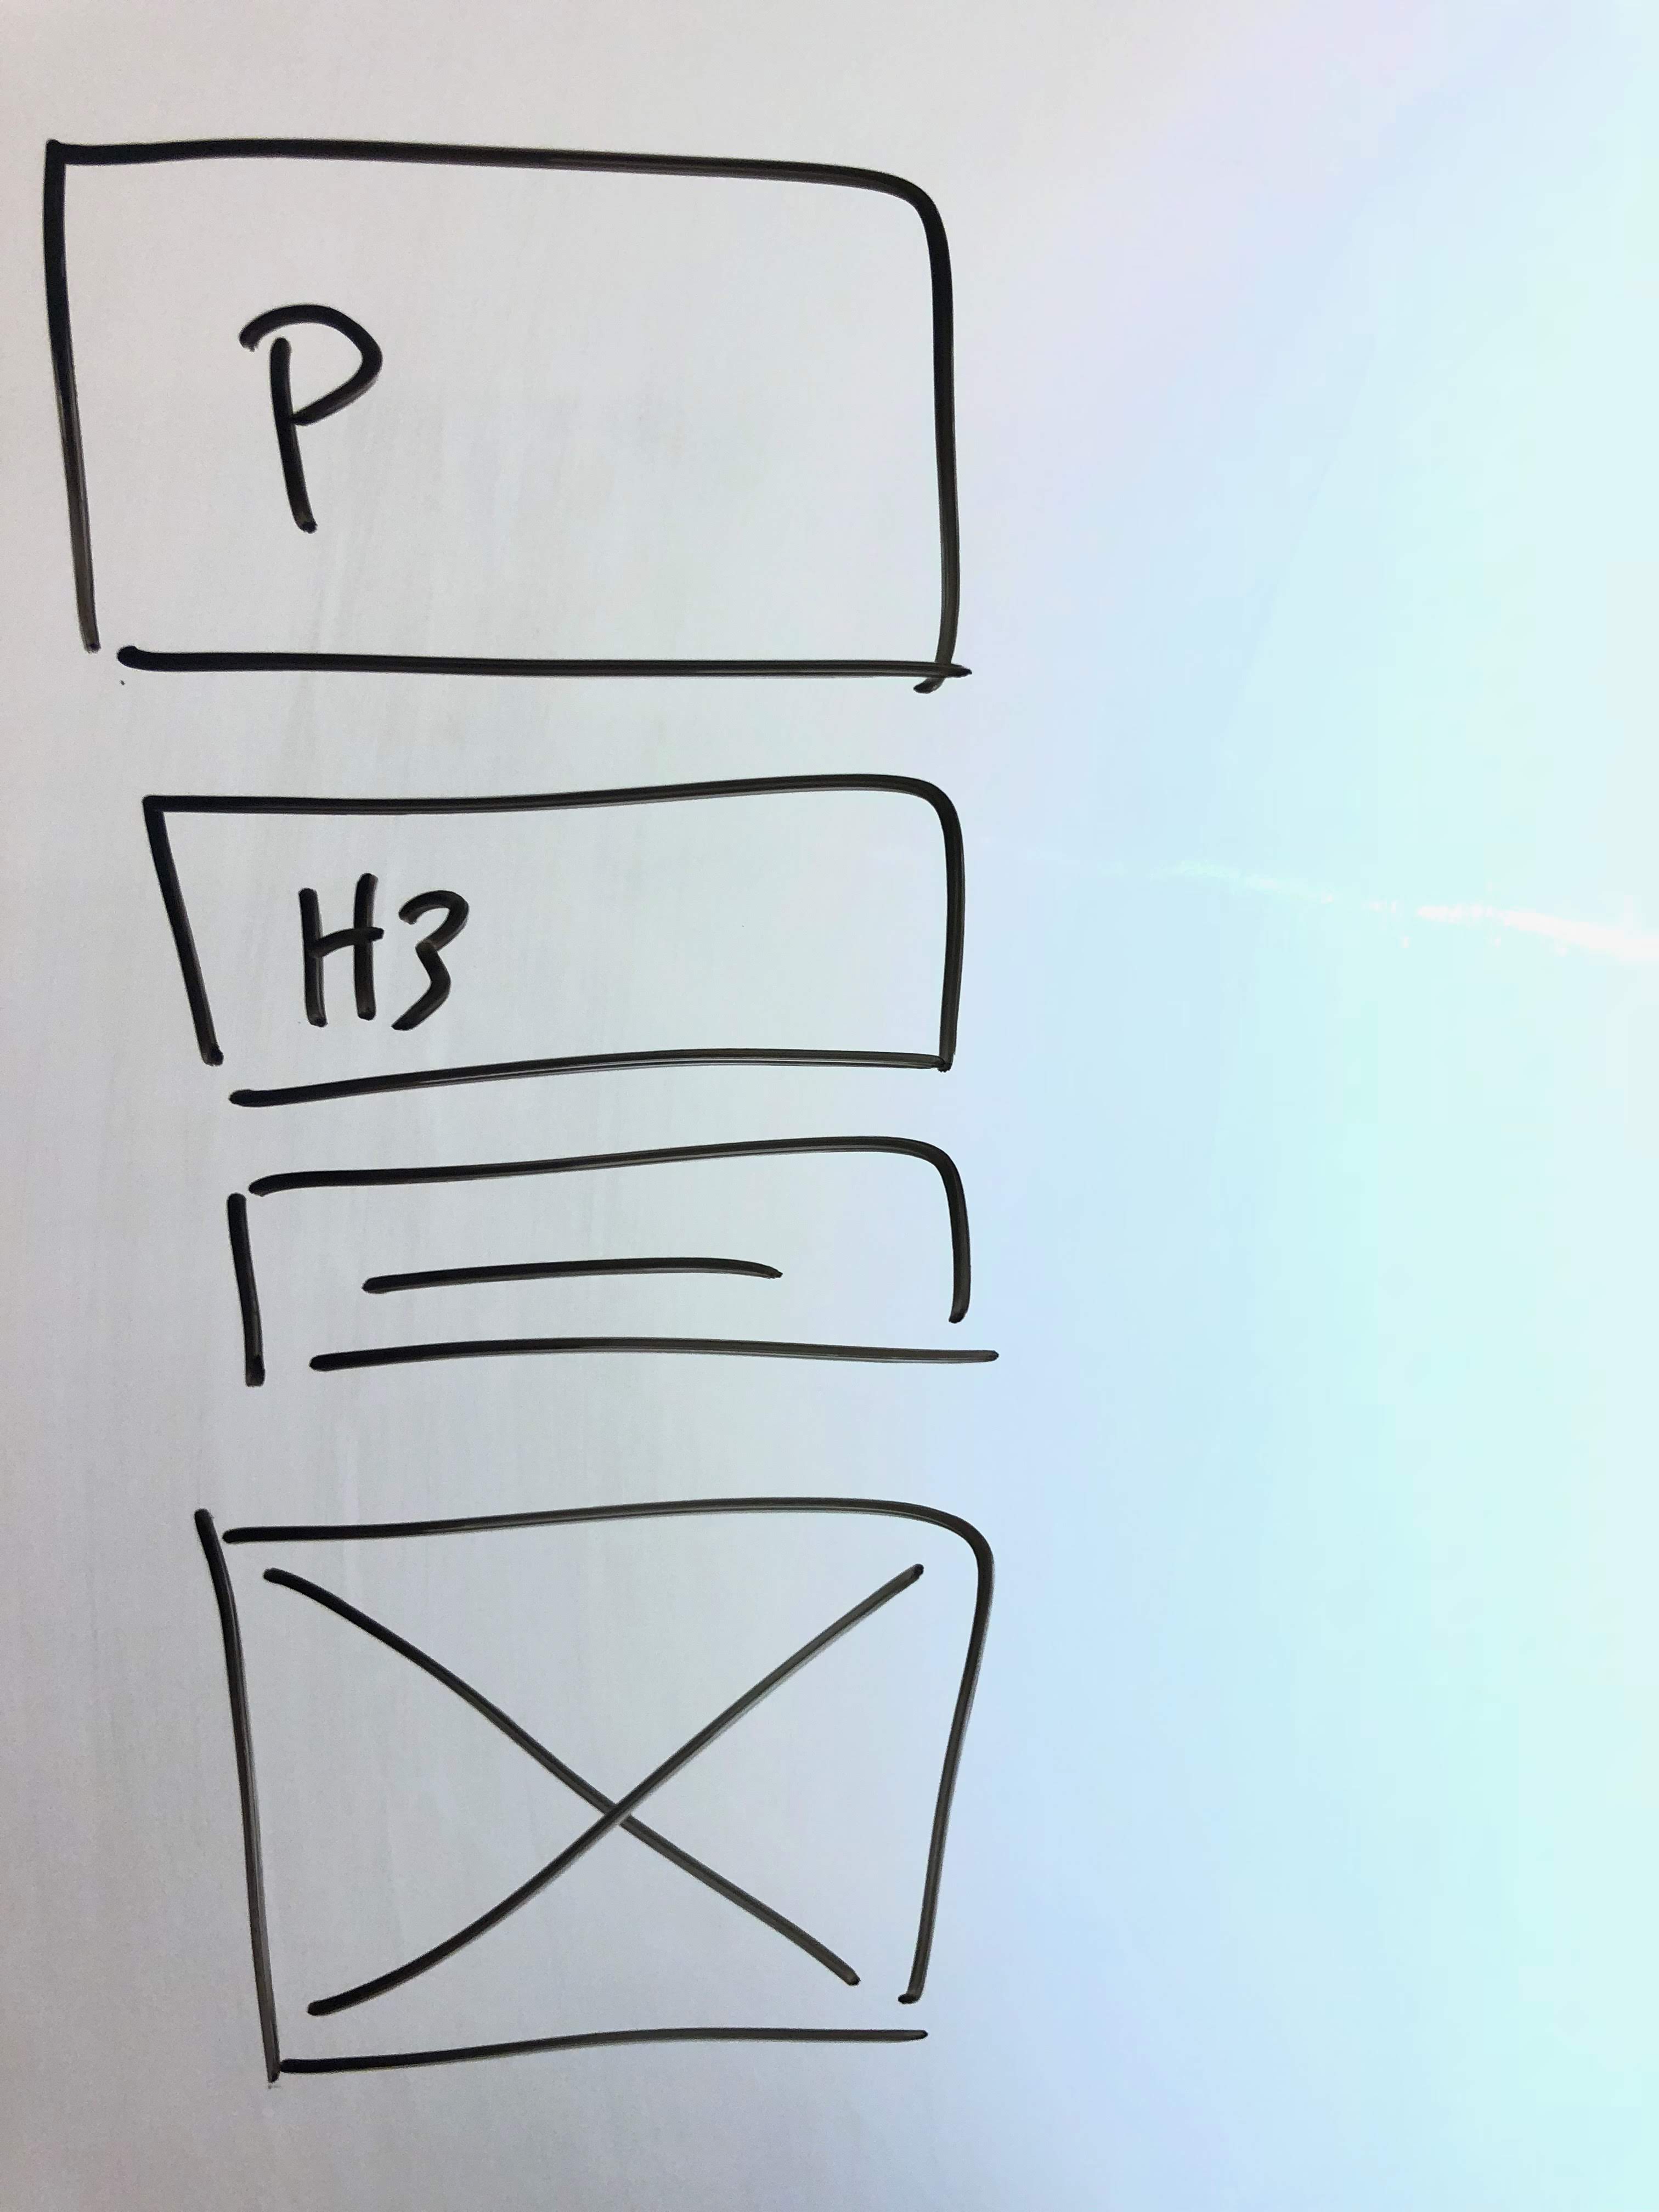 P
H3